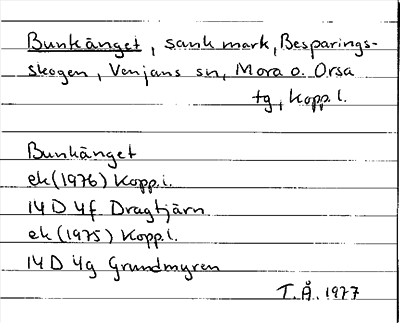 Bunkänget, sank mark, Besparings-
skogen, Venjans sn, Mora o. Orsa
tg, Kopp. l.
Bunkänget
ek (1976) Kopp. l.
14 D 4f Dragtjärn
ek (1975) Kopp. l.
14 D 4g Grundmyren
T. Å. 1977